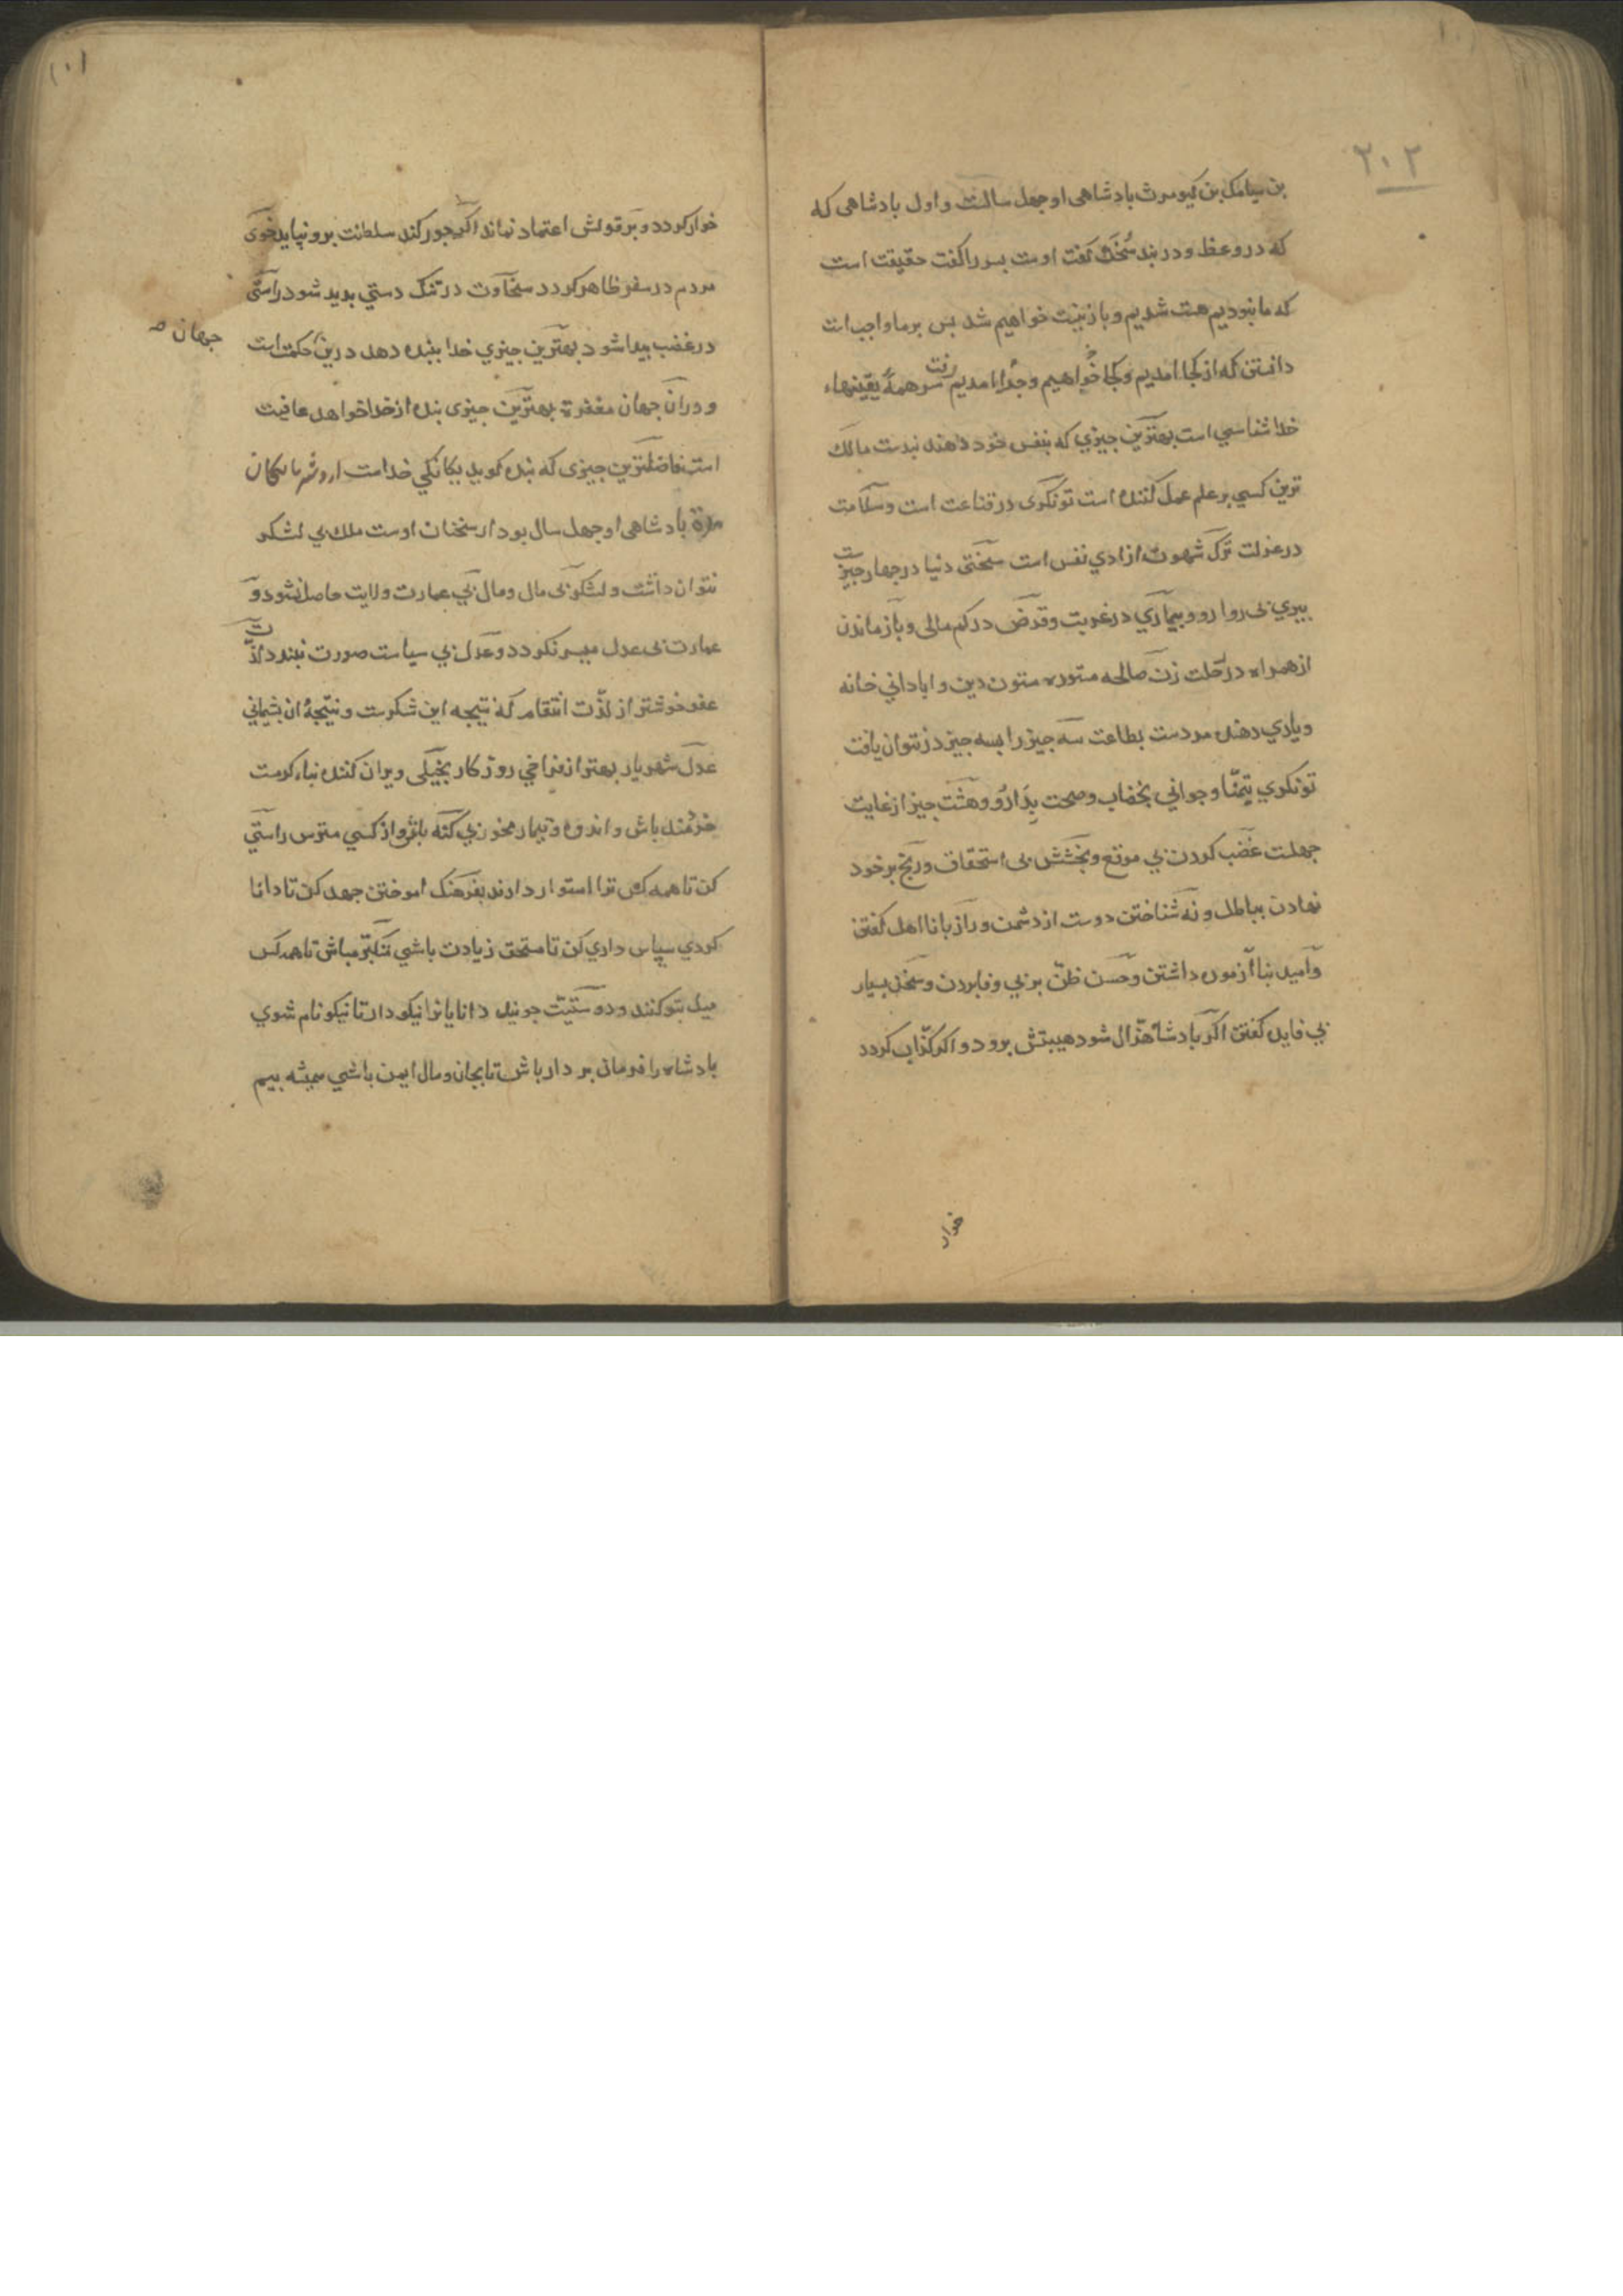 ۲۰۲
بن سیامک بن کیومرث بادشاهی او جهل سالست و اول بادشاهی که
که در وعظ و در بند سُخَن کفت اوست بسر را کفت حقیقت است
که ما نبودیم هست شدیم و باز نیست خواهیم شد بس بر ما واجب است
دانستن که از کجا امدیم و کجا خواهیم رفت و جرا امدیم سر همهٔ یقینهاء
خدا شناسي است بهترین جیزي که بنفس خود دهند نیست مالک
ترین کسي بر علم عمل کننده است تونکری در قناعت است و سلامت
در عزلت ترک شهوت ازادي نفس است سختی دنیا در جهار جیزست
بیري بی روا رو و بیماري در غربت و قرض در کم مالی و باز ماندن
از همراه در رحلت زن صالحه مستوره ستون دین و اباداني خانه
و یاري دهنده مردست بطاعت سه جیز را بسه جیز در نتوان یافت
تونکري بتمنّا و جواني بخضاب و صحت بِدَارُو و هشت جیز از غایت
جهلست غضب کردن بي موقع و بخشش بی استحقاق و رنج بر خود
نهادن بباطل و نه شناختن دوست از دشمن و راز بانا اهل کفتن
و امید بنا ازموده داشتن و حسن ظنّ بر بي وفا بردن و سخن بسیار
بي فایده کفتن اکر بادشاه هزّال شود هیبتش برود و اکر کذّاب کردد
خوار
۱۰۱
خوار کردد و بر قولش اعتماد نماند اکر جور کند سلطنت برو نپاید خوی
مردم در سفر ظاهر کردد سخاوت در تنک دستي بدید شود راستی
در غضب بیدا شود بهترین جیزي خدا بنده دهد درین حکمت است
جهان صح
و دران جهان مغفرة بهترین جیزی بنده از خدا خواهد عافیت
است فاضلترین جیزی که بنده کوید بیکانکي خداست اردشیر بابکان
بادشاهی او جهل سال بود از سخنان اوست ملک بي لشکر
نتوان داشت و لشکر بی مال و مال بي عمارت ولایت حاصل نشود و
عمارت بی عدل میسر نکردد و عدل بي سیاست صورت نبندد لذّت
عفو خوشتر از لذّت انتقام که نتیجه این شکرست و نتیجهٔ ان بشیماني
عدل شهریار بهتر از فراخي روزکار بخیلی ویران کننده بناء کرمست
خرمند باش و اندوه و تیمار مخور بي کنه باش و از کسي مترس راستي
کن تا همه کس ترا استوار دارند بفرهنک اموختن جهد کن تا دانا
کردي سپاس داري کن تا مستحق زیادت باشي متکبّر مباش تا همه کس
میل بتو کنند و دوستیت جویند دانایانرا نیکو دار تا نیکو نام شوي
بادشاه را فرمان بردار باش تا بجان و مال ایمن باشي همیشه بیم